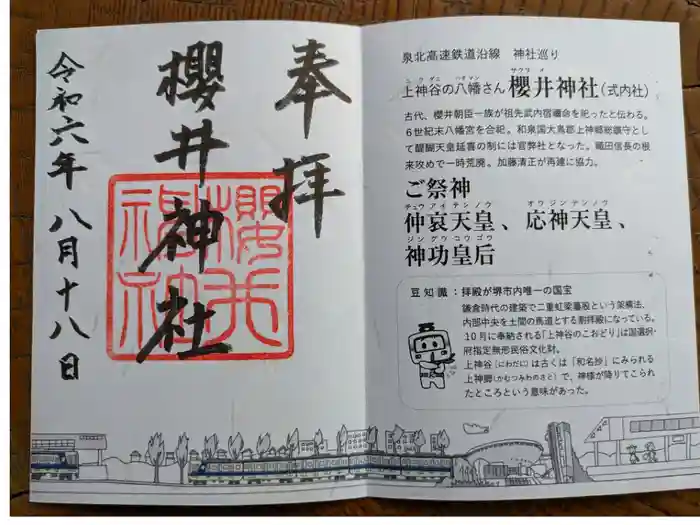 奉拝
櫻井神社
令和六年 八月十八日
櫻井
神社
泉北高速鉄道沿線 神社巡り
ニワダニ ハチマン サクライ
上神谷の八幡さん 櫻井神社(式内社)
古代、櫻井朝臣一族が祖先武内宿禰命を祀ったと伝わる。
6世紀末八幡宮を合祀。和泉国大鳥郡上神郷総鎮守とし
て醍醐天皇延喜の制には官弊社となった。織田信長の根
来攻めで一時荒廃。加藤清正が再建に協力。
ご祭神
チュウアイテンノウ オウジンテンノウ
仲哀天皇、応神天皇、
ジングウコウゴウ
神功皇后
豆知識:拝殿が堺市内唯一の国宝
鎌倉時代の建築で二重虹梁蟇股という架構法、
内部中央を土間の馬道とする割拝殿になっている。
10月に奉納される「上神谷のこおどり」は国選択・
府指定無形民俗文化財。
上神谷(にわだに)は古くは「和名抄」にみられる
上神郷(かむつみわのさと)で、神様が降りてこられ
たところという意味があった。